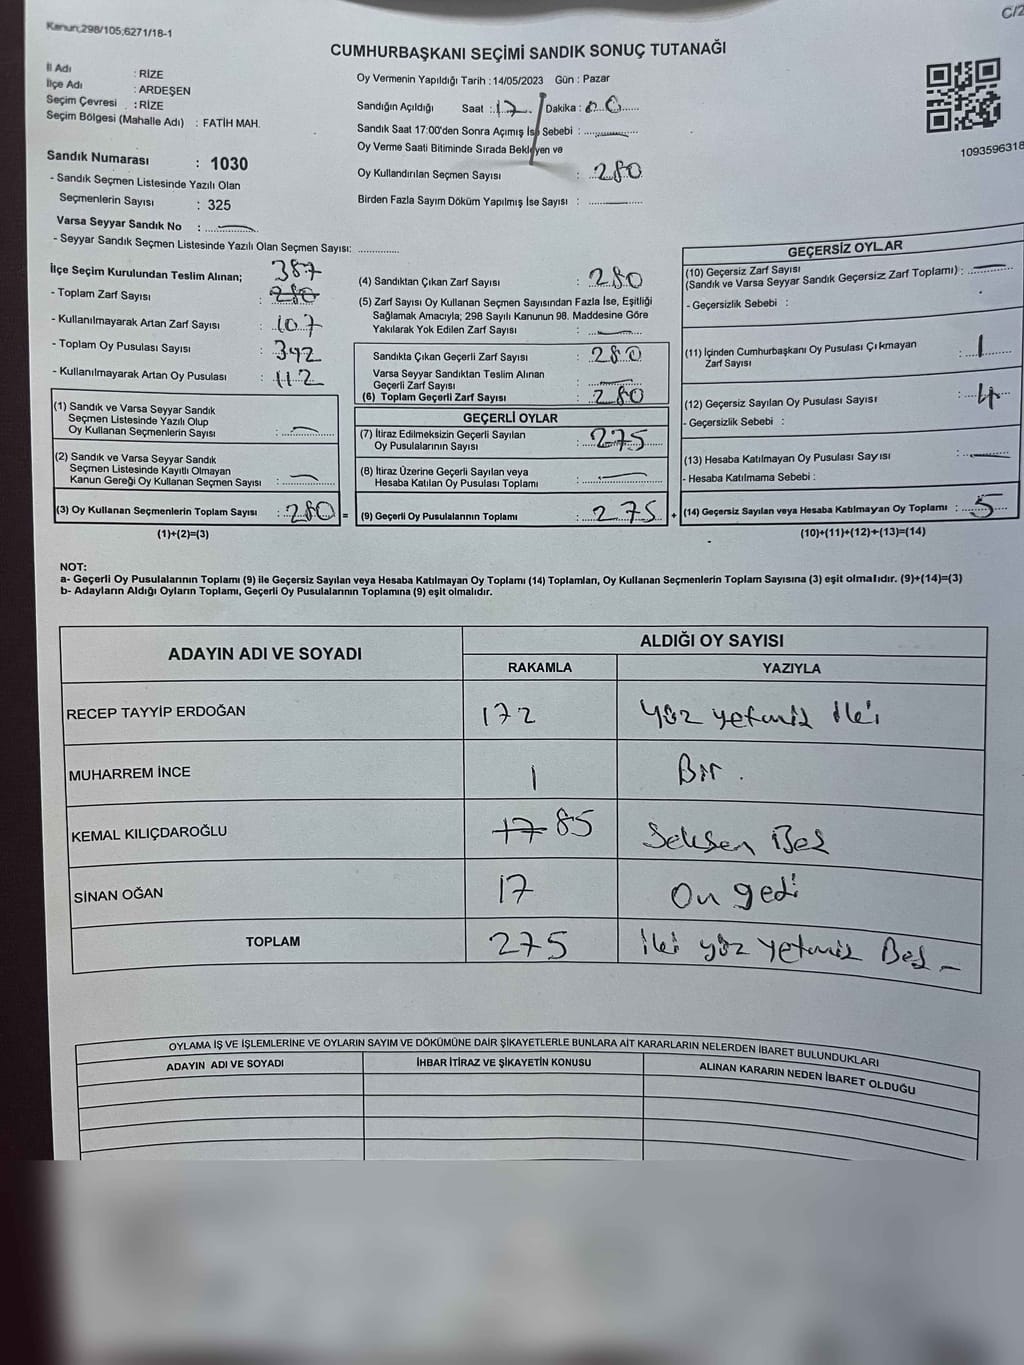 Kanun;298/105;6271/18-1
C/2
CUMHURBAŞKANI SEÇİMİ SANDIK SONUÇ TUTANAĞI
İl Adı : RİZE
İlçe Adı : ARDEŞEN
Seçim Çevresi : RİZE
Seçim Bölgesi (Mahalle Adı) : FATİH MAH.
Sandık Numarası : 1030
- Sandık Seçmen Listesinde Yazılı Olan
Seçmenlerin Sayısı : 325
Varsa Seyyar Sandık No :
- Seyyar Sandık Seçmen Listesinde Yazılı Olan Seçmen Sayısı:
Oy Vermenin Yapıldığı Tarih : 14/05/2023 Gün : Pazar
Sandığın Açıldığı Saat : 17 Dakika : 00
Sandık Saat 17:00'den Sonra Açımış İse Sebebi :
Oy Verme Saati Bitiminde Sırada Bekleyen ve
Oy Kullandırılan Seçmen Sayısı : 280
Birden Fazla Sayım Döküm Yapılmış İse Sayısı :
1093596318
İlçe Seçim Kurulundan Teslim Alınan; 387
- Toplam Zarf Sayısı : 280
- Kullanılmayarak Artan Zarf Sayısı : 107
- Toplam Oy Pusulası Sayısı : 392
- Kullanılmayarak Artan Oy Pusulası : 112
(1) Sandık ve Varsa Seyyar Sandık
Seçmen Listesinde Yazılı Olup
Oy Kullanan Seçmenlerin Sayısı :
(2) Sandık ve Varsa Seyyar Sandık
Seçmen Listesinde Kayıtlı Olmayan
Kanun Gereği Oy Kullanan Seçmen Sayısı :
(3) Oy Kullanan Seçmenlerin Toplam Sayısı : 280 =
(1)+(2)=(3)
(4) Sandıktan Çıkan Zarf Sayısı : 280
(5) Zarf Sayısı Oy Kullanan Seçmen Sayısından Fazla İse, Eşitliği
Sağlamak Amacıyla; 298 Sayılı Kanunun 98. Maddesine Göre
Yakılarak Yok Edilen Zarf Sayısı :
Sandıkta Çıkan Geçerli Zarf Sayısı : 280
Varsa Seyyar Sandıktan Teslim Alınan
Geçerli Zarf Sayısı :
(6) Toplam Geçerli Zarf Sayısı : 280
GEÇERLİ OYLAR
(7) İtiraz Edilmeksizin Geçerli Sayılan
Oy Pusulalarının Sayısı : 275
(8) İtiraz Üzerine Geçerli Sayılan veya
Hesaba Katılan Oy Pusulası Toplamı :
(9) Geçerli Oy Pusulalarının Toplamı : 275 +
GEÇERSİZ OYLAR
(10) Geçersiz Zarf Sayısı
(Sandık ve Varsa Seyyar Sandık Geçersiz Zarf Toplamı) :
- Geçersizlik Sebebi :
(11) İçinden Cumhurbaşkanı Oy Pusulası Çıkmayan
Zarf Sayısı : 1
(12) Geçersiz Sayılan Oy Pusulası Sayısı : 4
- Geçersizlik Sebebi :
(13) Hesaba Katılmayan Oy Pusulası Sayısı :
- Hesaba Katılmama Sebebi :
(14) Geçersiz Sayılan veya Hesaba Katılmayan Oy Toplamı : 5
(10)+(11)+(12)+(13)=(14)
NOT:
a- Geçerli Oy Pusulalarının Toplamı (9) ile Geçersiz Sayılan veya Hesaba Katılmayan Oy Toplamı (14) Toplamları, Oy Kullanan Seçmenlerin Toplam Sayısına (3) eşit olmalıdır. (9)+(14)=(3)
b- Adayların Aldığı Oyların Toplamı, Geçerli Oy Pusulalarının Toplamına (9) eşit olmalıdır.
ADAYIN ADI VE SOYADI
ALDIĞI OY SAYISI
RAKAMLA YAZIYLA
RECEP TAYYİP ERDOĞAN 172 yüz yetmiş iki
MUHARREM İNCE 1 Bir .
KEMAL KILIÇDAROĞLU 17 85 Seksen Beş
SİNAN OĞAN 17 On yedi
TOPLAM 275 iki yüz yetmiş Beş -
OYLAMA İŞ VE İŞLEMLERİNE VE OYLARIN SAYIM VE DÖKÜMÜNE DAİR ŞİKAYETLERLE BUNLARA AİT KARARLARIN NELERDEN İBARET BULUNDUKLARI
ADAYIN ADI VE SOYADI İHBAR İTİRAZ VE ŞİKAYETİN KONUSU ALINAN KARARIN NEDEN İBARET OLDUĞU